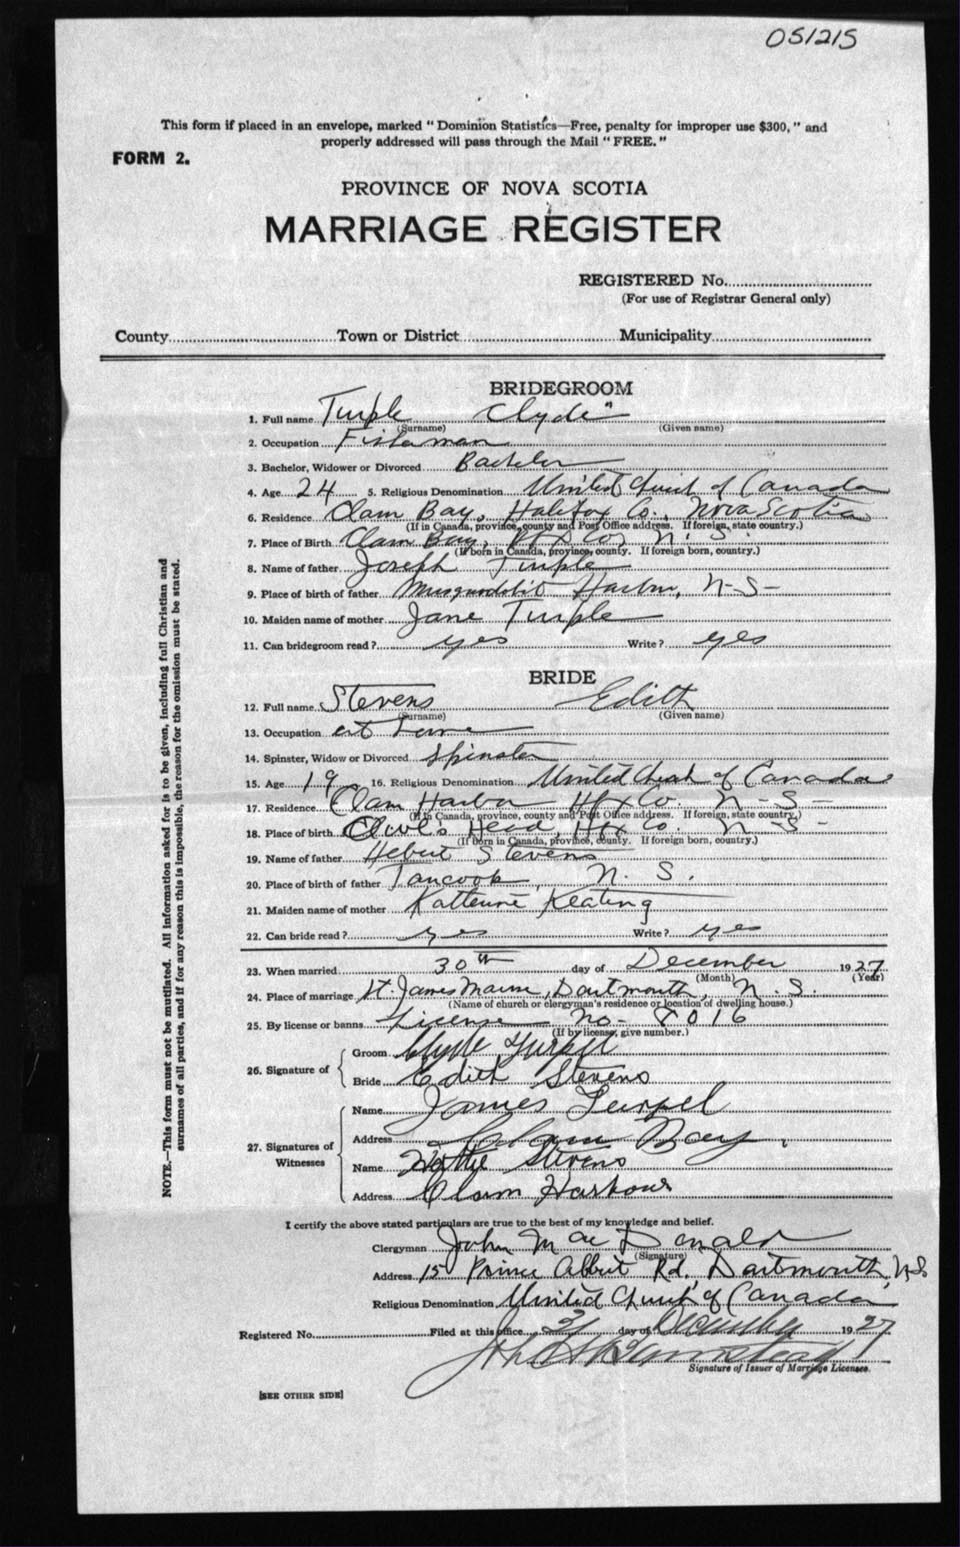 051215
This form if placed in an envelope, marked "Dominion Statistics—Free, penalty for improper use $300," and
properly addressed will pass through the Mail "FREE."
FORM 2.
PROVINCE OF NOVA SCOTIA
MARRIAGE REGISTER
REGISTERED No.
(For use of Registrar General only)
County Town or District Municipality
BRIDEGROOM
1. Full name Turple Clyde
(Surname) (Given name)
2. Occupation Fisherman
3. Bachelor, Widower or Divorced Bachelor
4. Age 24 5. Religious Denomination United Church of Canada
6. Residence Clam Bay, Halifax Co., Nova Scotia
(If in Canada, province, county and Post Office address. If foreign, state country.)
7. Place of Birth Clam Bay, Hfx Co, N. S.
(If born in Canada, province, county. If foreign born, country.)
8. Name of father Joseph Turple
9. Place of birth of father Musquodobit Harbor, N-S-
10. Maiden name of mother Jane Turple
11. Can bridegroom read? yes Write? yes
BRIDE
12. Full name Stevens Edith
(Surname) (Given name)
13. Occupation at home
14. Spinster, Widow or Divorced Spinster
15. Age 19 16. Religious Denomination United Church of Canada
17. Residence Clam Harbor Hfx Co. N-S-
(If in Canada, province, county and Post Office address. If foreign, state country.)
18. Place of birth Head, Hfx Co. N-S-
(If born in Canada, province, county. If foreign born, country.)
19. Name of father Hebert Stevens
20. Place of birth of father Tancook, N. S.
21. Maiden name of mother Katterine Keating
22. Can bride read? yes Write? yes
23. When married 30th day of December 1927
(Month) (Year)
24. Place of marriage St. James Manse, Dartmouth, N. S.
(Name of church or clergyman's residence or location of dwelling house.)
25. By license or banns License no- 8016
(If by license, give number.)
26. Signature of
Groom Clyde Turpel
Bride Edith Stevens
27. Signatures of Witnesses
Name James Turpel
Address Clam Bay.
Name Stevens
Address Clam Harbour
I certify the above stated particulars are true to the best of my knowledge and belief.
Clergyman John MacDonald
(Signature)
Address 15 Prince Albert Rd, Dartmouth, N.S.
Religious Denomination United Church of Canada
Registered No. Filed at this office 31 day of December 1927
Signature of Issuer of Marriage Licenses.
[SEE OTHER SIDE]
NOTE.—This form must not be mutilated. All information asked for is to be given, including full Christian and
surnames of all parties, and if for any reason this is impossible, the reason for the omission must be stated.